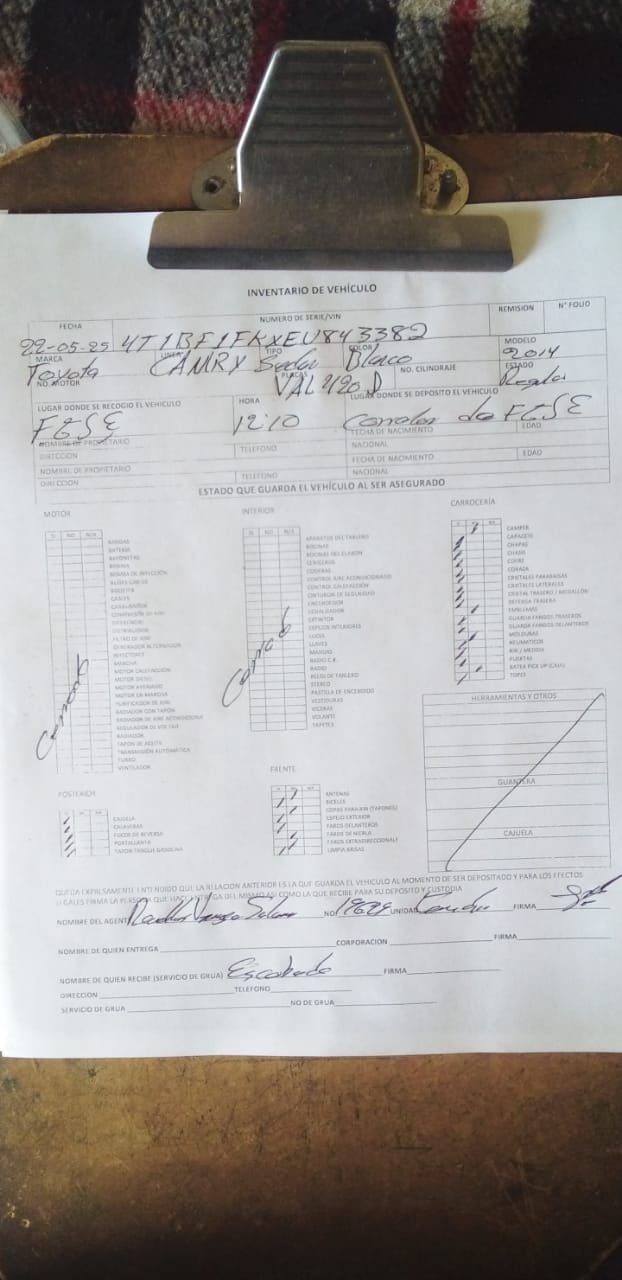 INVENTARIO DE VEHÍCULO
FECHA NUMERO DE SERIE/VIN REMISION N° FOLIO
22-05-25 4T1BF1FKXEU843382
MARCA LINEA TIPO COLOR NO. CILINDRAJE MODELO
Toyota CAMRY Sedan Blanco 2014
NO. MOTOR PLACAS ESTADO
VAL420D Regular
LUGAR DONDE SE RECOGIO EL VEHICULO HORA LUGAR DONDE SE DEPOSITO EL VEHICULO
FGSE 12:10 Corralon de FGSE
NOMBRE DE PROPIETARIO TELEFONO FECHA DE NACIMIENTO EDAD
DIRCCION NACIONAL
NOMBRE DE PROPIETARIO TELEFONO FECHA DE NACIMIENTO EDAD
DIRECCION NACIONAL
ESTADO QUE GUARDA EL VEHÍCULO AL SER ASEGURADO
MOTOR INTERIOR CARROCERÍA
SI NO N/A
BANDAS
BATERIA
BAYONETAS
BOBINA
BOMBA DE INYECCION
CABLES
CARBURADOR
DISTRIBUIDOR
FILTRO DE AIRE
GENERADOR ALTERNADOR
INYECTORES
MARCHA
MOTOR CALEFACCION
MOTOR DIESEL
MOTOR AVERIADO
MOTOR EN MARCHA
PURIFICADOR DE AIRE
RADIADOR CON TAPON
RADIADOR DE AIRE ACONDICIONADO
REGULADOR DE VOLTAJE
RADIADOR
TAPON DE ACEITE
TRANSMISION AUTOMATICA
TURBO
VENTILADOR
SI NO N/A
APARATOS DEL TABLERO
BOCINAS
BOCINAS DEL CLAXON
CENICEROS
CODERAS
CONTROL AIRE ACONDICIONADO
CONTROL CALEFACCION
CINTURON DE SEGURIDAD
ENCENDEDOR
ECUALIZADOR
EXTINTOR
ESPEJOS INTERIORES
LUCES
LLAVES
MANIJAS
RADIO C.B.
RADIO
RELOJ DE TABLERO
STEREO
PASTILLA DE ENCENDIDO
VESTIDURAS
VICERAS
VOLANTE
TAPETES
CAMPER
CAPACETE
CHAPAS
CHASIS
COFRE
CORAZA
CRISTALES PARABRISAS
CRISTALES LATERALES
CRISTAL TRASERO / MEDALLON
DEFENSA TRASERA
EMBLEMAS
GUARDA FANGOS TRASEROS
GUARDA FANGOS DELANTEROS
MOLDURAS
NEUMATICOS
RIN / MEDIDA
PUERTAS
BATEA PICK UP (CAJA)
TOPES
HERRAMIENTAS Y OTROS
GUANTERA
CAJUELA
POSTERIOR
SI NO N/A
CAJUELA
CALAVERAS
FOCOS DE REVERSA
PORTALLANTA
TAPON TANQUE GASOLINA
FRENTE
SI NO N/A
ANTENAS
BICELES
ESPEJO EXTERIOR
FAROS DELANTEROS
FAROS DE NIEBLA
FAROS EXTRADIRECCIONALE
LIMPIA BRISAS
QUEDA EXPRESAMENTE ENTENDIDO QUE LA RELACION ANTERIOR ES LA QUE GUARDA EL VEHICULO AL MOMENTO DE SER DEPOSITADO Y PARA LOS EFECTOS
LEGALES FIRMA LA PERSONA QUE HACE ENTREGA DEL MISMO ASI COMO LA QUE RECIBE PARA SU DEPOSITO Y CUSTODIA
NOMBRE DEL AGENTE NO UNIDAD FIRMA
NOMBRE DE QUIEN ENTREGA CORPORACION FIRMA
NOMBRE DE QUIEN RECIBE (SERVICIO DE GRUA) Escobedo FIRMA
DIRECCION TELEFONO
SERVICIO DE GRUA NO DE GRUA